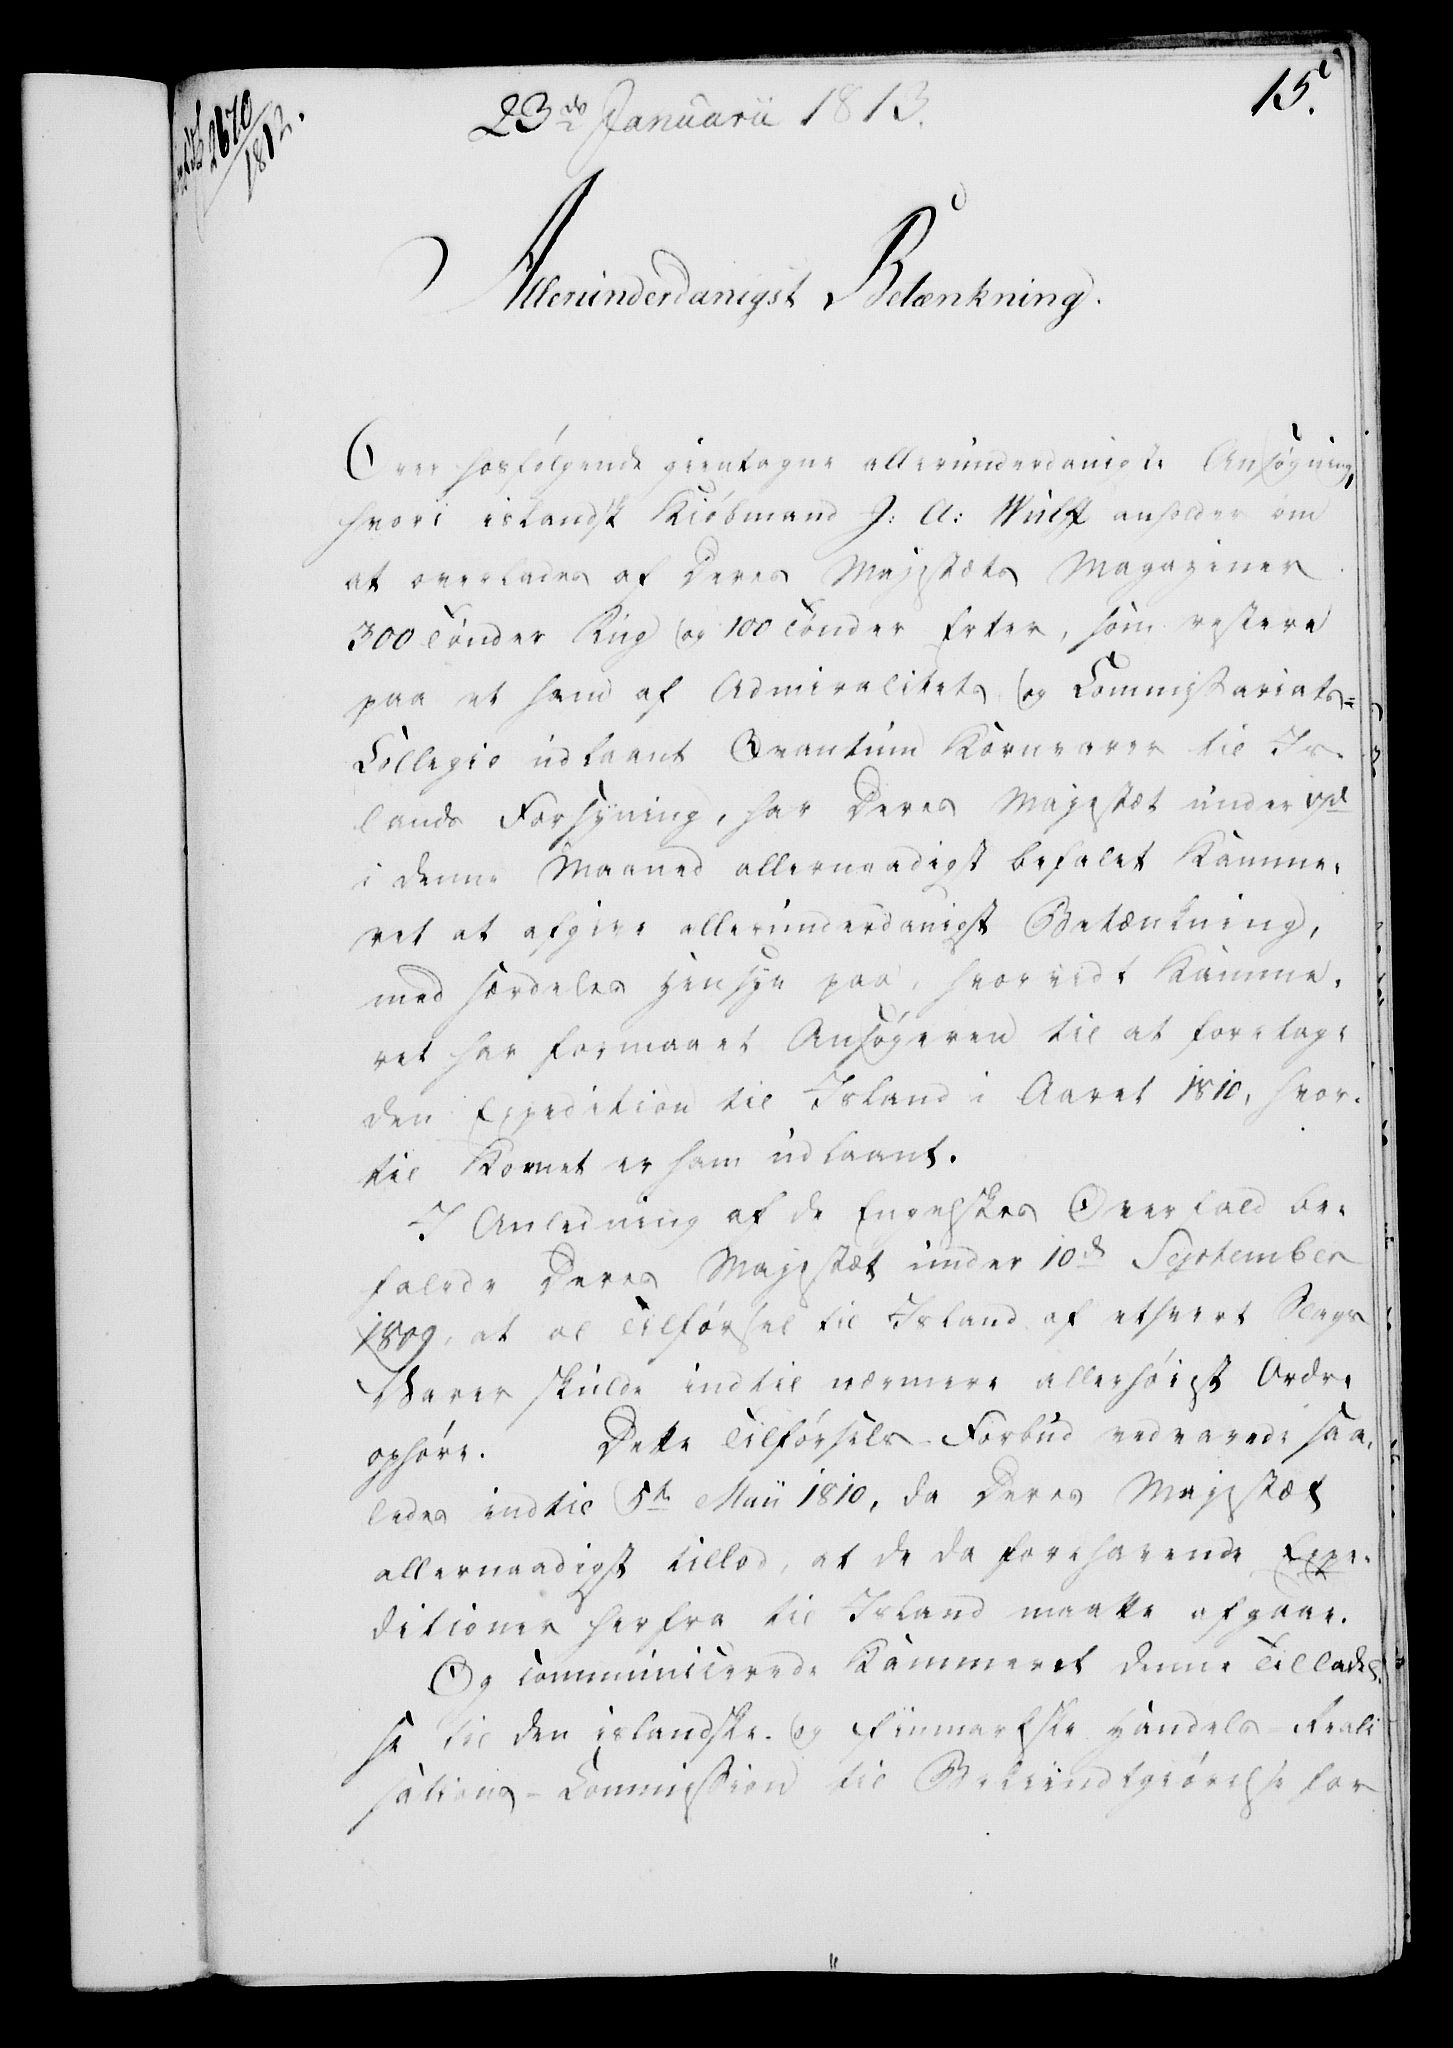 2670
1812.
23de Januarii 1813.
15.
Allerunderdanigst Betænkning.
Over hosfølgende gientagne allerunderdanigste Ansøgning,
hvori islandsk Kiöbmand J: A: Wulff anholder om
at overlades af Deres Majestæts Magaziner
300 Tönder Rug og 100 Tönder Erter, som restere
paa et ham af Admiralitets og Commissariats-
Collegie udlaant Qvantum Kornvarer til Is-
lands Forsyning, har Deres Majestæt under
i denne Maaned allernaadigst befalet Kamme-
ret at afgive allerunderdanigst Betænkning,
med særdeles Hensyn paa, hvorvidt Kamme-
ret har formaaet Ansøgeren til at foretage
den Expedition til Island i Aaret 1810, hvor-
til Kornet er ham udlaant.
I Anledning af de Engelskes Overfald be-
falede Deres Majestæt under 10de September
1809, at al Tilførsel til Island af ethvert Slags
Varer skulde indtil nærmere allerhöiest Ordre
ophöre. Dette Tilförsels-Forbud vedvarede saa-
ledes indtil 5te Maii 1810, da Deres Majestæt
allernaadigst tillod, at de da forehavende Expe-
ditioner herfra til Island maatte afgaae.
Og communicerede Kammeret denne Tilladel-
se til den islandske og finmarkske Handels-Reali-
sations-Commission til Bekiendtgiörelse for